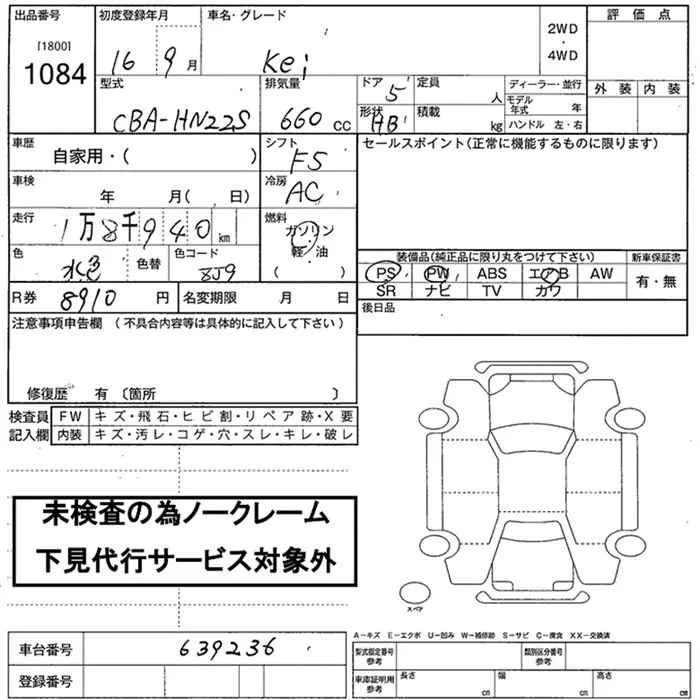 出品番号 初度登録年月 車名・グレード 2WD・4WD 評価点
[1800]
1084 16 9月 Kei
型式 排気量 ドア 定員 ディーラー・並行 外装 内装
CBA-HN22S 660 cc 5 人 モデル年式 年
形状 積載 ハンドル 左・右
HB kg
車歴 シフト セールスポイント(正常に機能するものに限ります)
自家用・( ) F5
車検 冷房
年 月( 日) AC
走行 燃料
1万8千940km ガソリン
色 色替 色コード 軽・油 装備品(純正品に限り丸をつけて下さい) 新車保証書
水色 8J9 ( ) PS PW ABS エアB AW 有・無
R券 8910 円 名変期限 月 日 SR ナビ TV カワ
後日品
注意事項申告欄 (不具合内容等は具体的に記入して下さい)
修復歴 有 〔箇所 〕
検査員 FW キズ・飛石・ヒビ割・リペア跡・X要
記入欄 内装 キズ・汚レ・コゲ・穴・スレ・キレ・破レ
未検査の為ノークレーム
下見代行サービス対象外
スペア
A-キズ E-エクボ U-凹み W-補修跡 S-サビ C-腐食 XX-交換済
車台番号 639236 型式指定番号 参考 類別区分番号 参考
登録番号 車庫証明用 参考 長さ cm 幅 cm 高さ cm